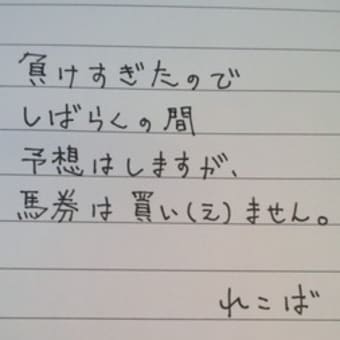 負けすぎたので
しばらくの間
予想はしますが、
馬券は買い(え)ません。
れこば